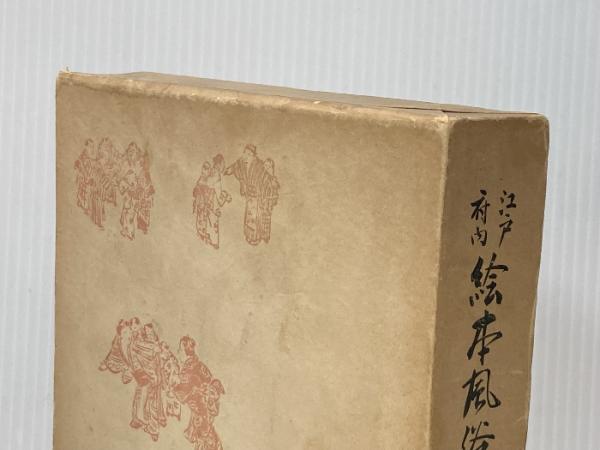 江戸
府内
絵本風俗